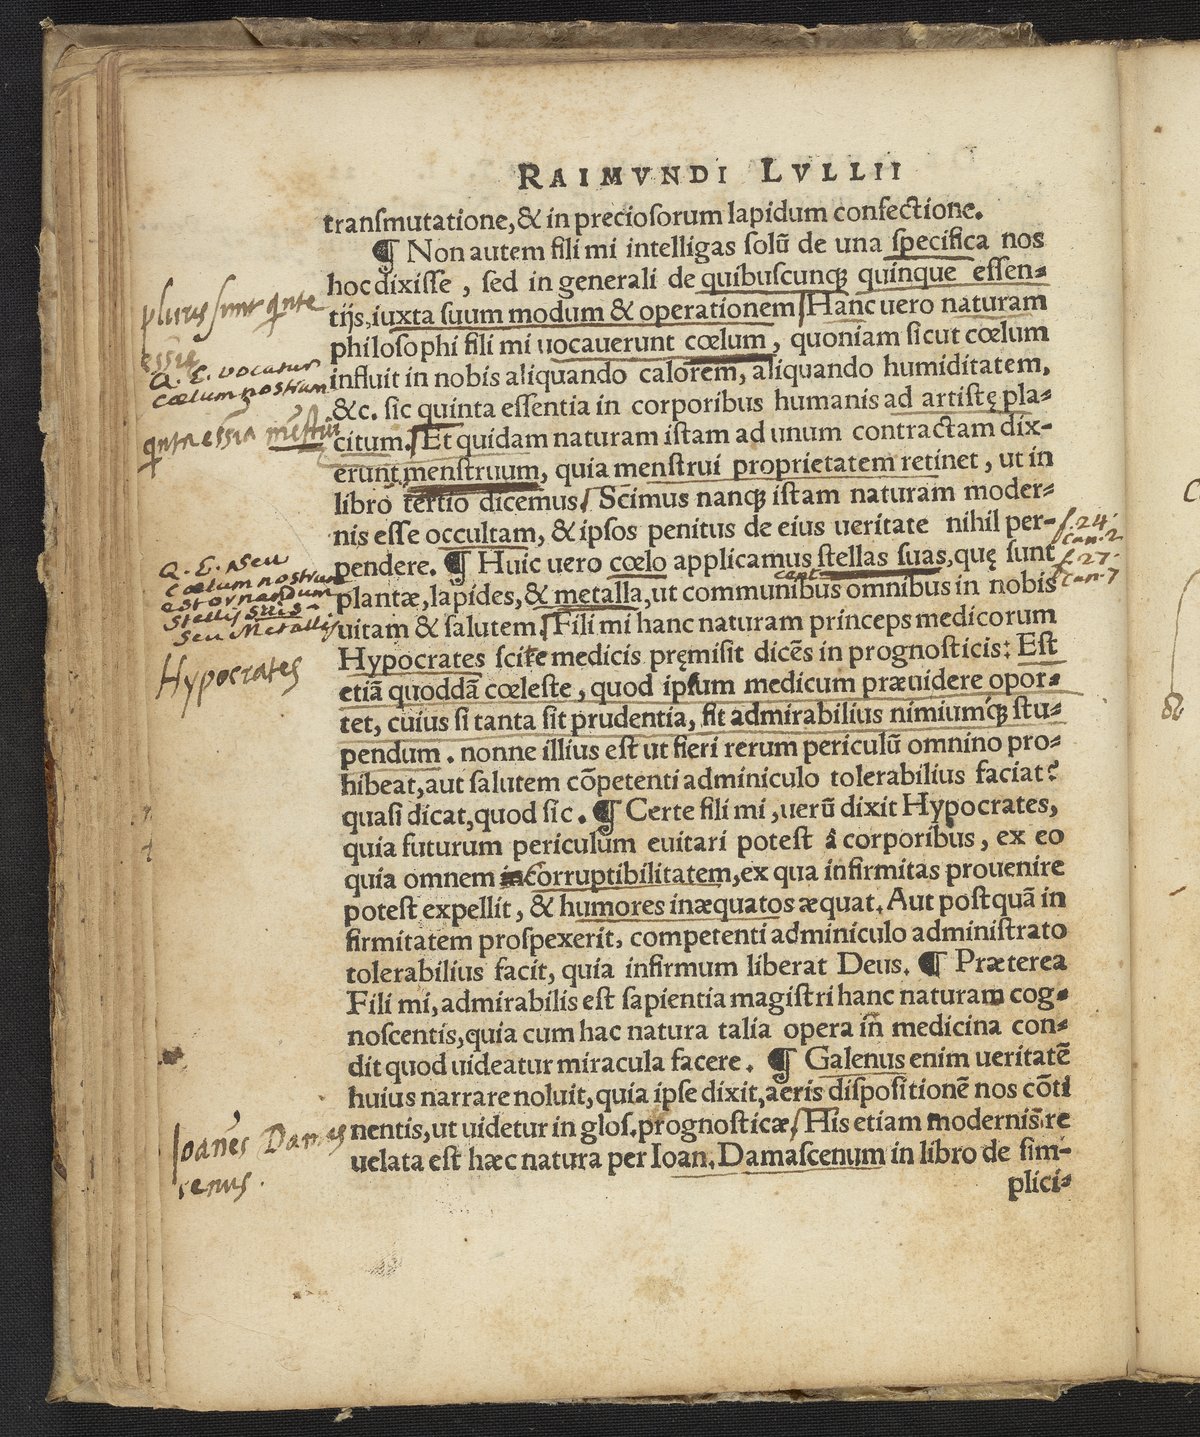 RAIMVNDI LVLLII
transmutatione, & in preciosorum lapidum confectione.
¶ Non autem fili mi intelligas solũ de una specifica nos
hoc dixisse, sed in generali de quibuscunq; quinque essen-
tijs, iuxta suum modum & operationem/ Hanc uero naturam
philosophi fili mi uocauerunt cœlum, quoniam sicut cœlum
influit in nobis aliquando calorem, aliquando humiditatem,
&c. sic quinta essentia in corporibus humanis ad artistę pla-
citum./ Et quidam naturam istam ad unum contractam dix-
erunt menstruum, quia menstrui proprietatem retinet, ut in
libro tertio dicemus/ Scimus nanq; istam naturam moder-
nis esse occultam, & ipsos penitus de eius ueritate nihil per-
pendere. ¶ Huic uero cœlo applicamus stellas suas, quę sunt
plantæ, lapides, & metalla, ut communibus omnibus in nobis
uitam & salutem./ Fili mi hanc naturam princeps medicorum
Hypocrates scire medicis pręmisit dicẽs in prognosticis: Est
etiã quoddã cœleste, quod ipsum medicum præuidere opor-
tet, cuius si tanta sit prudentia, fit admirabilius nimiumq; stu-
pendum. nonne illius est ut fieri rerum periculũ omnino pro-
hibeat, aut salutem cõpetenti adminiculo tolerabilius faciat?
quasi dicat, quod sic. ¶ Certe fili mi, uerũ dixit Hypocrates,
quia futurum periculum euitari potest â corporibus, ex eo
quia omnem incorruptibilitatem, ex qua infirmitas prouenire
potest expellit, & humores inæquatos æquat. Aut postquã in
firmitatem prospexerit, competenti adminiculo administrato
tolerabilius facit, quia infirmum liberat Deus. ¶ Præterea
Fili mi, admirabilis est sapientia magistri hanc naturam cog-
noscentis, quia cum hac natura talia opera in medicina con-
dit quod uideatur miracula facere. ¶ Galenus enim ueritatẽ
huius narrare noluit, quia ipse dixit, aeris dispositionẽ nos cõti
nentis, ut uidetur in glos. prognosticæ/ His etiam modernis re
uelata est hæc natura per Ioan. Damascenum in libro de sim-
plici-
plures sunt qnte
essiæ
Q. E. vocatur
Cœlum nostrum
qnta essia mẽstruũ
Q. E. seu
cœlum nostrum
est ornandum
stellis suis
seu Metallis
Hypocrates
Ioanẽs Damas
cenus.
f. 24.
Can. 2
f. 27.
Can. 7